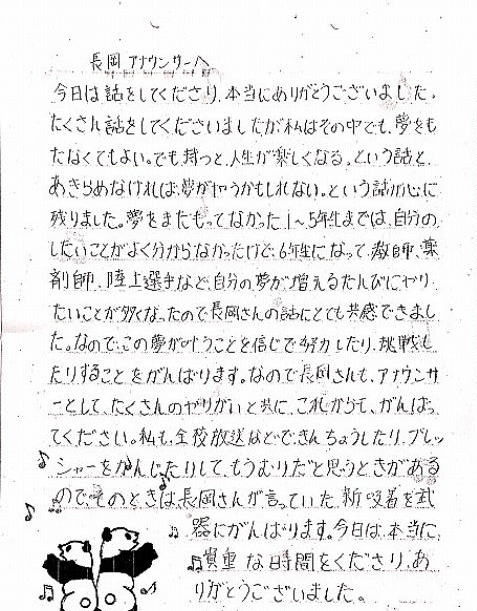 長岡アナウンサーへ
今日は話をしてくださり、本当にありがとうございました。
たくさん話をしてくださいましたが私はその中でも、夢をも
たなくてもよい。でも持つと、人生が楽しくなる。という話と、
あきらめなければ、夢がかなうかもしれない。という話が心に
残りました。夢をまだもってなかった1～5年生までは、自分の
したいことがよく分からなかったけど、6年生になって、教師、薬
剤師、陸上選手など、自分の夢が増えるたんびにやり
たいことが多くなったので長岡さんの話にとても共感できまし
た。なので、この夢が叶うことを信じて努力したり、挑戦し
たりすることをがんばります。なので長岡さんも、アナウンサ
ーとして、たくさんのやりがいと共に、これからも、がんばっ
てください。私も、全校放送などできんちょうしたり、プレッ
シャーをかんじたりして、もうむりだと思うときがある
のでそのときは長岡さんが言っていた
を武
器にがんばります。今日は、本当に、
貴重な時間をくださり、あ
りがとうございました。